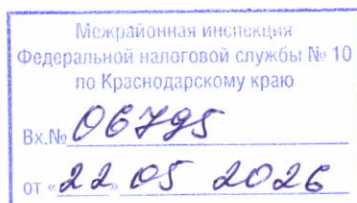 Межрайонная инспекция
Федеральной налоговой службы № 10
по Краснодарскому краю
Вх.№ 06795
от «22» 05 2026